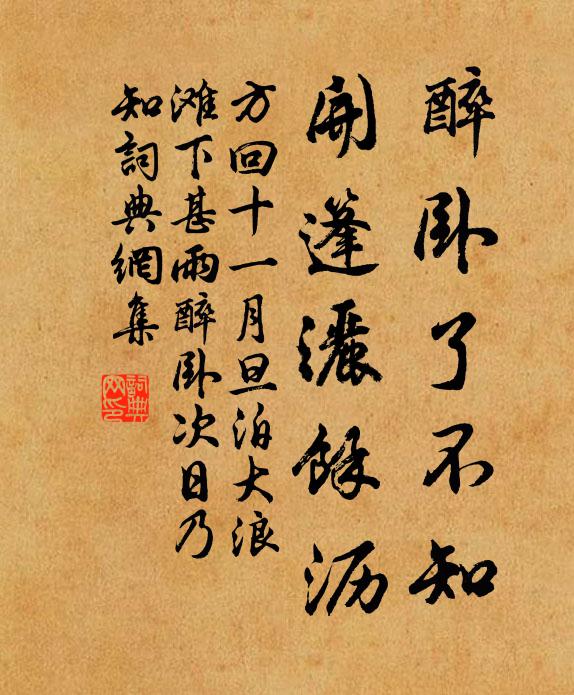 醉卧了不知
開篷灑餘沥
方回十一月旦泊大浪
滩下甚雨醉卧次日乃
知詞典網集
詞典
网印